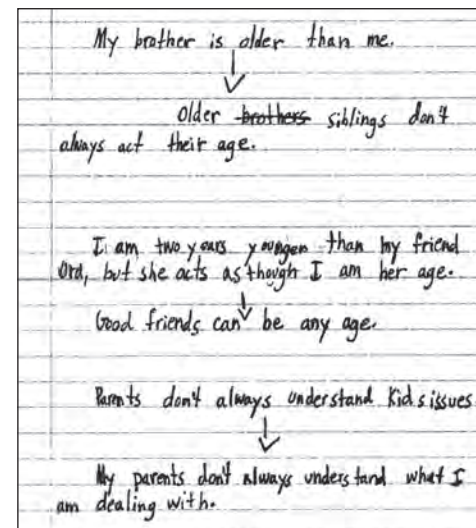 My brother is older than me.
Older brothers siblings don't
always act their age.
I am two years younger than my friend
but she acts as though I am her age.
Good friends can be any age.
Parents don't always understand Kids issues
My parents don't always understand what I
am dealing with.